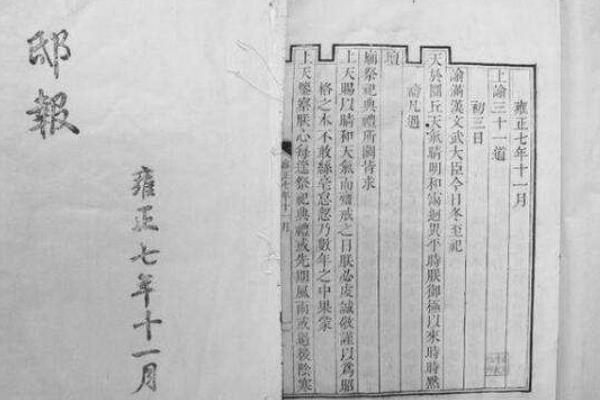 邸報
雍正七年十一月
雍正七年十一月
上諭三十一道
初三日
諭滿漢文武大臣今日冬至祀
天於圜丘天氣晴明和靄迥異平時朕御極以來時時黙
諭凡遇
壇
廟祭祀典禮所關皆求
上天賜以晴和天氣而齋戒之日朕必虔誠敬謹以爲昭
格之本不敢絲毫怠忽乃數年之中果蒙
上天鑒察朕心每逢祭祀典禮或先期風雨或過後陰寒
正七年十一月